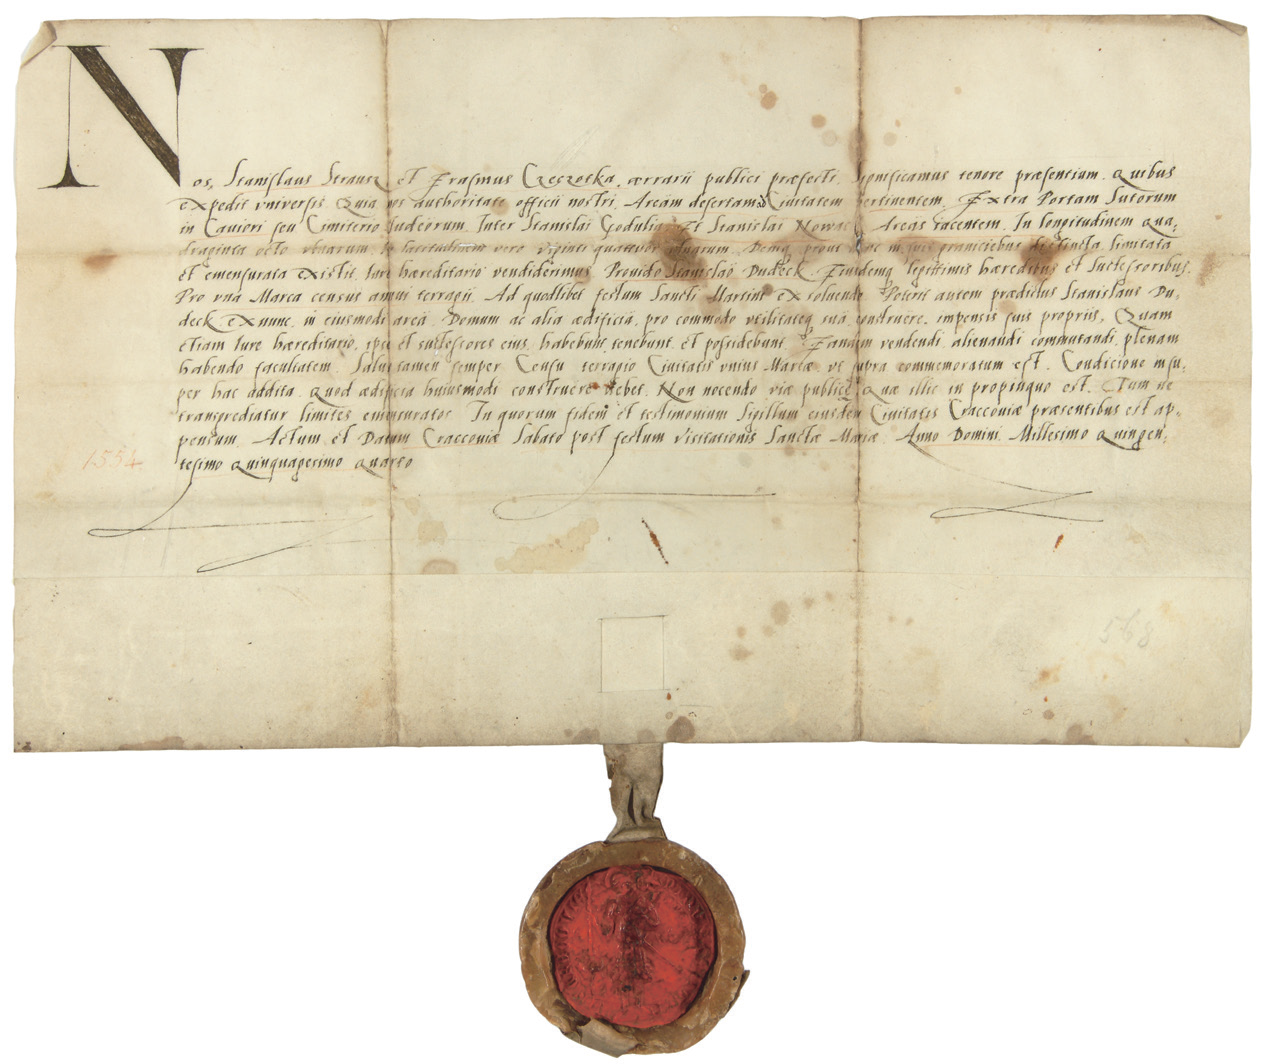 Nos, Stanislaus Strausz et Erasmus Czeczotka, ærrarii publici præfecti, Significamus tenore præsentium, Quibus
expedit vniversis Quia nos authoritate officii nostri, Aream desertam ad Civitatem pertinentem, Extra Portam Sutorum
in Caviori seu Cimiterio Judæorum, Inter Stanislai Godulia Et Stanislai Nowak Areas iacentem, In longitudinem Qua-
draginta octo vlnarum, In latitudinem vero viginti quattuor vlnarum, Demq, prout hæc in suis graniciebus distincta, limitata
et emensurata existit, Iure hæreditario vendiderimus Provido Stanislao Dudeck, Eiusdemq, legittimis hæredibus et Successoribus,
Pro vna Marca census annui terragii, Ad quodlibet festum Sancti Martini Exoluendo, Poterit autem prædictus Stanislaus Du-
deck Exnunc, in eiusmodi area, Domum ac alia ædificia, pro commodo vtilitateq, sua construere, impensis suis propriis, Quam
etiam Iure hæreditario, ipse et successores eius, habebunt, tenebunt, et possidebunt, Eandem vendendi, alienandi commutandi, plenam
habendo facultatem, Saluo tamen semper Censu terragio Civitatis vnius Marcæ vt supra commemoratum est, Condicione insu-
per hac addita, Quod ædificia huiusmodi construere debet, Non nocendo viæ publicæ, Quæ illic in propinquo est, Tum ne
transgrediatur limites emensuratos, In quorum fidem et testimonium Sigillum eiusdem Civitatis Cracoviæ præsentibus est ap-
pensum, Actum et Datum Cracoviæ Sabato post festum Visitationis Sanctæ Mariæ, Anno Domini Millesimo Quingen-
1554 tesimo Quinquagesimo Quarto
568